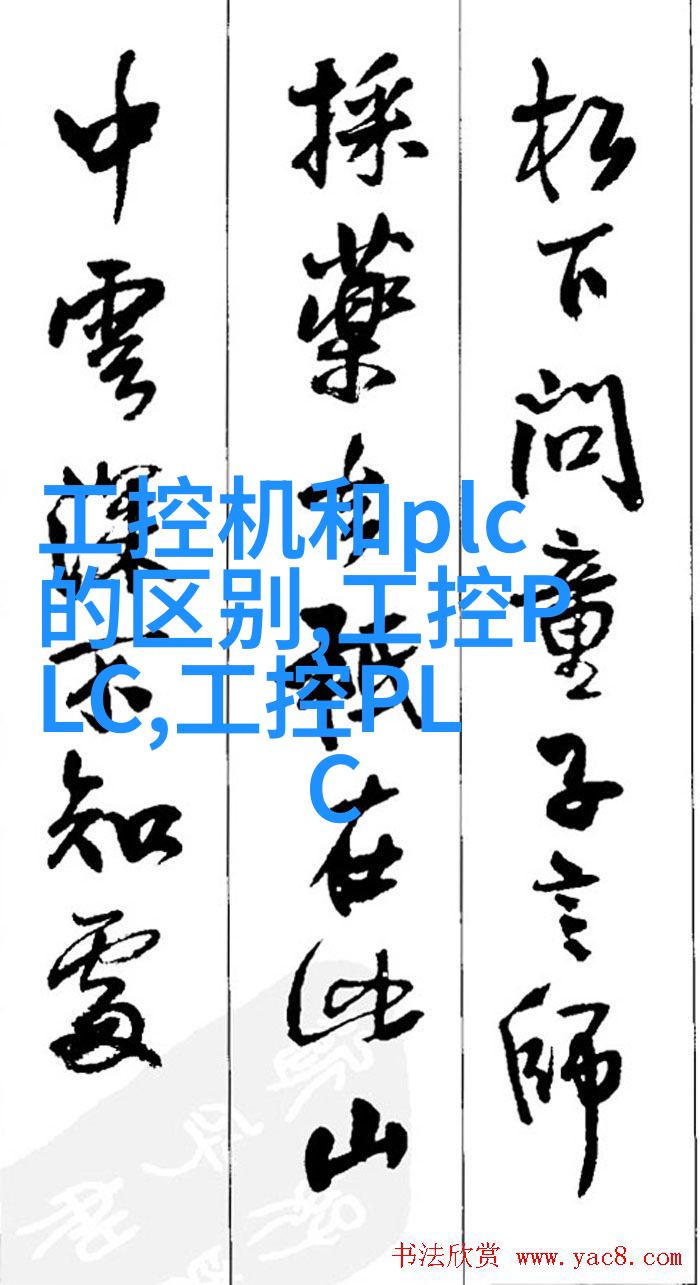 松下问童子言師
採藥去秖在此山
中雲深不知處
工控机和plc
的区别,工控P
LC,工控PL
C
书法欣赏 www.yac8.com